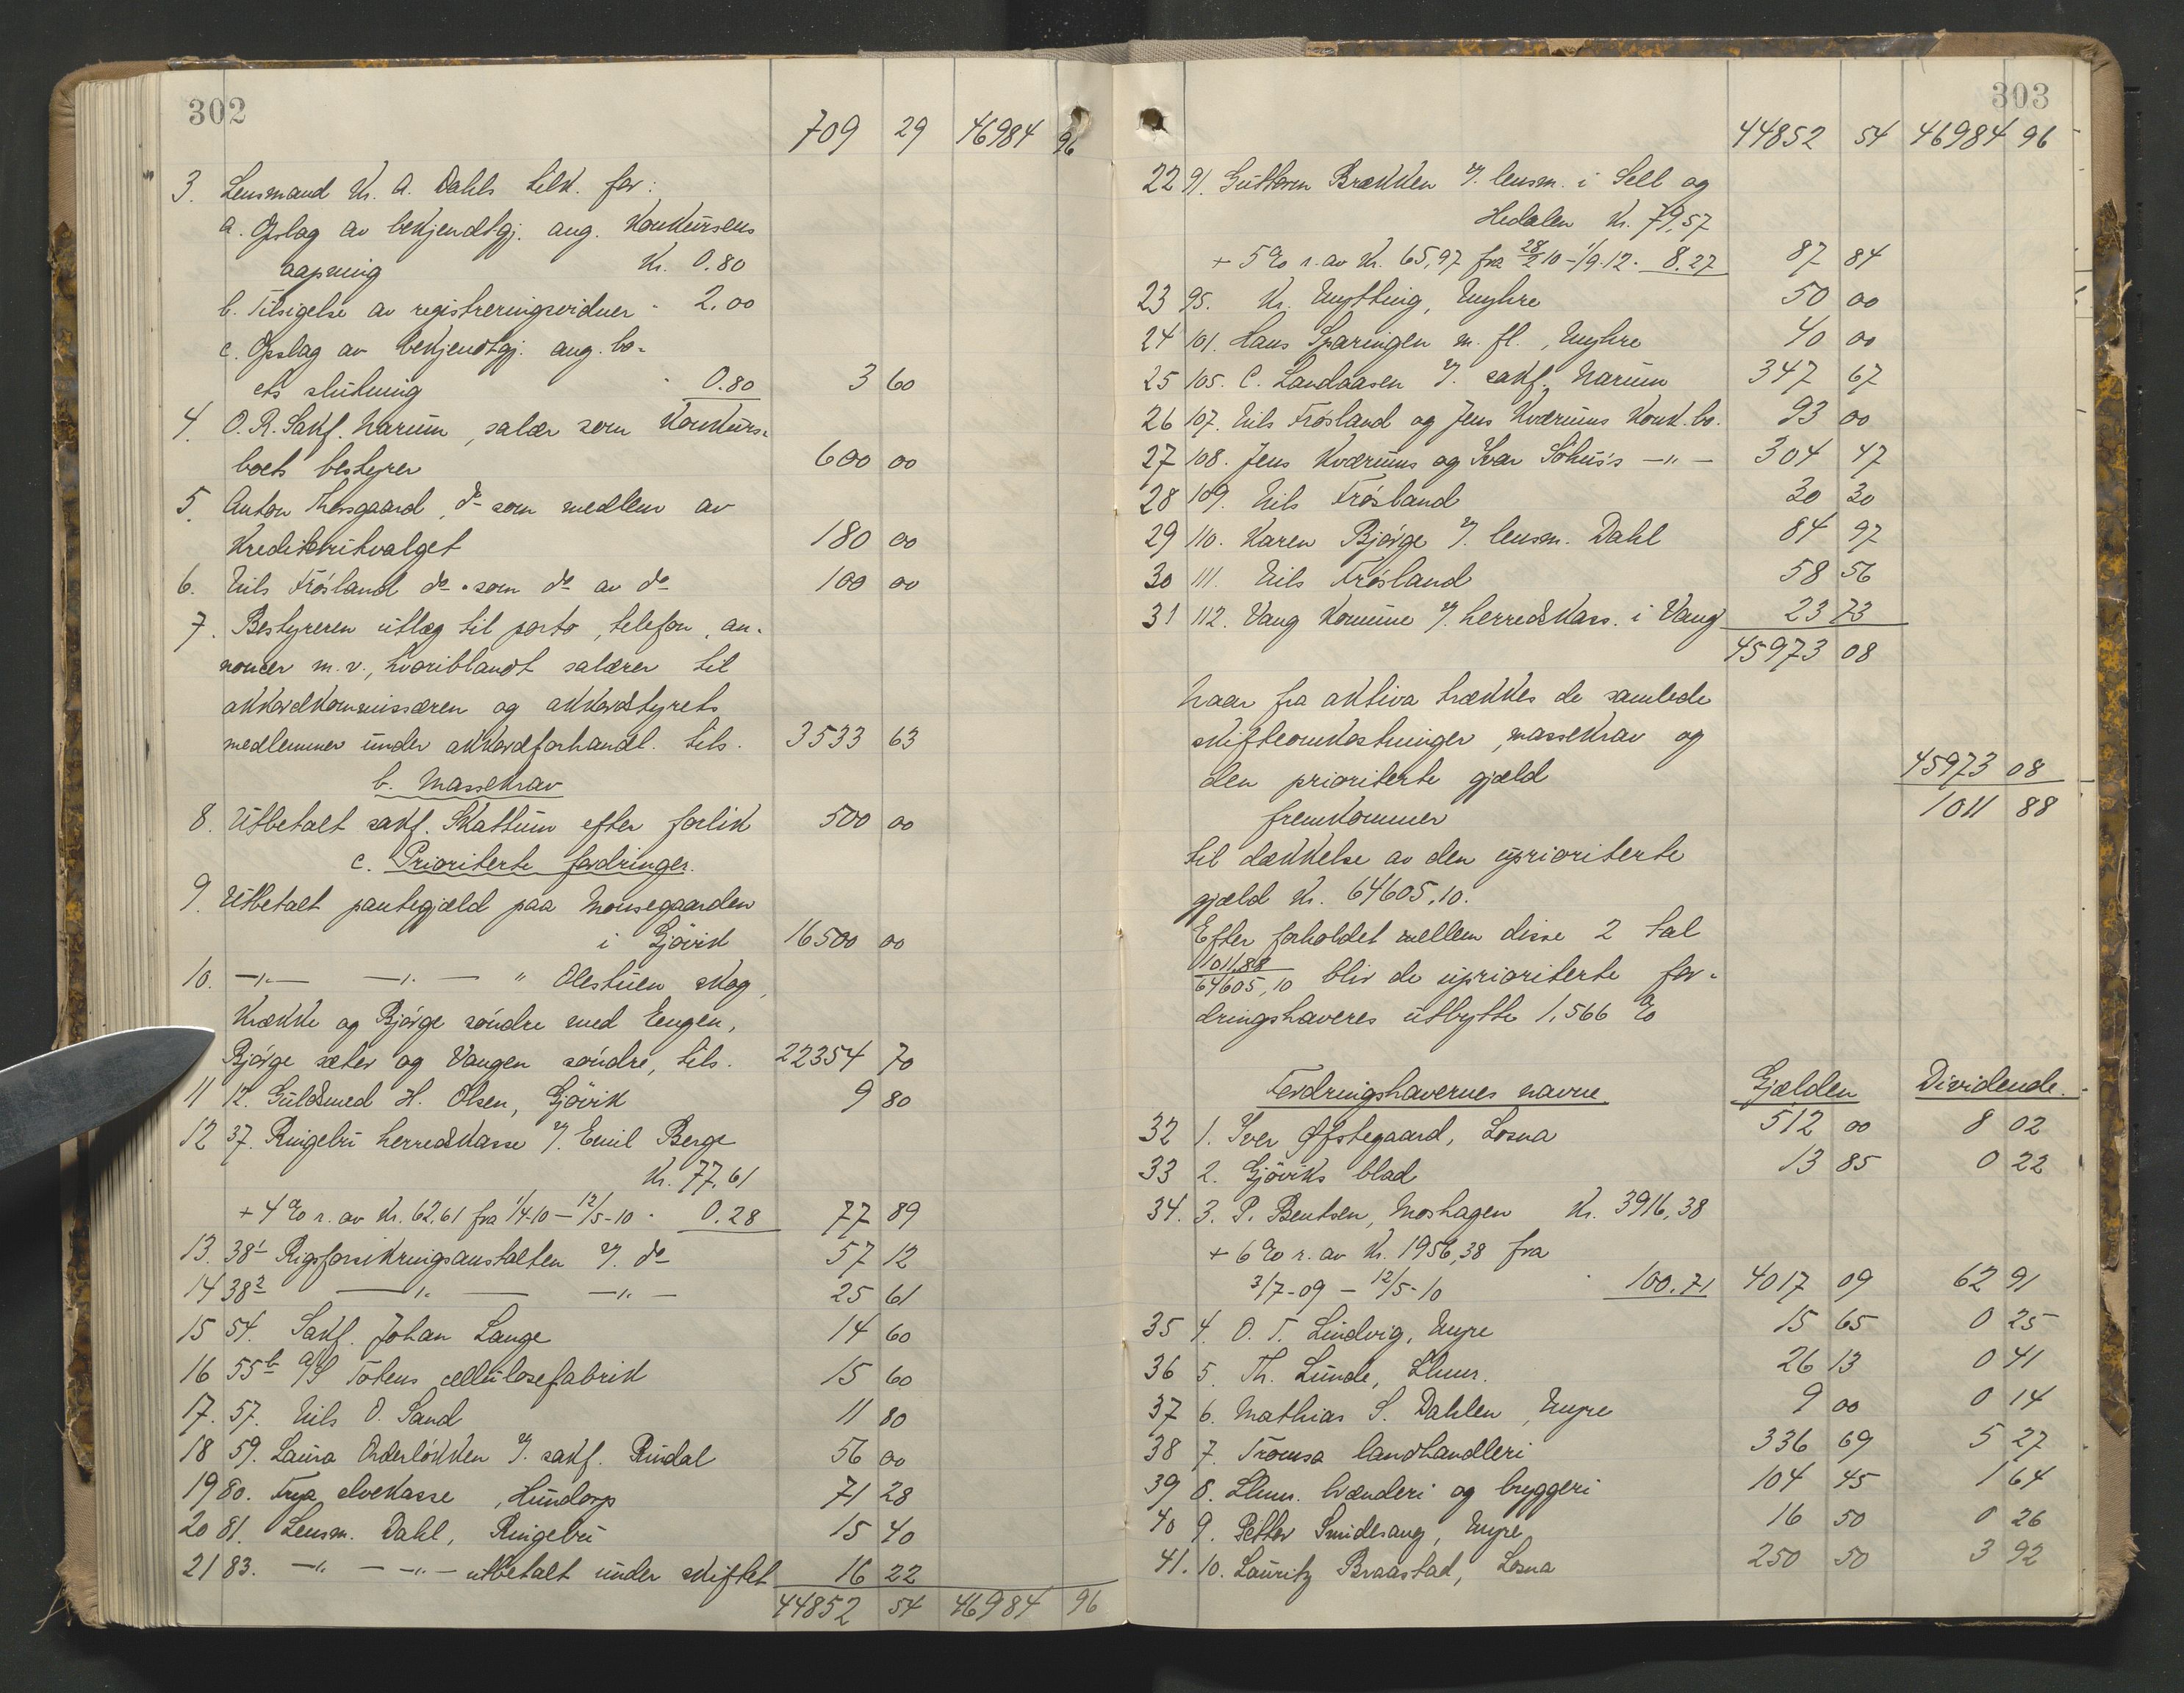 302
709 29 46984 96
3. Lensmand Kr. A. Dahls tilk. for:
a. Opslag av bekjendtgj. ang. konkursens
aapning Kr. 0.80
b. Tilsigelse av registreringsvidner " 2.00
c. Opslag av bekjendtgj. ang. bo-
ets slutning " 0.80 3 60
4. O.R.Sakf. Narum, salær som konkurs-
boets bestyrer 600 00
5. Anton Thorsgaard, do som medlem av
kreditorutvalget 180 00
6. Nils Frösland do som do av do 100 00
7. Bestyreren utlæg til porto, telefon, an-
noncer m.v., hvoriblandt salærer til
akkordkommissæren og akkordstyrets
medlemmer under akkordforhandl. tils. 3533 63
b. Massekrav
8. Utbetalt sakf. Skattum efter forlik 500 00
c. Prioriterte fordringer.
9. Utbetalt pantegjæld paa Monsegaarden
i Gjövik 16500 00
10. —"— —"— " Olestuen skog,
Krække og Björge söndre med Engen,
Björge sæter og Vangen söndre, tils. 22354 70
11 12. Guldsmed H. Olsen, Gjövik 9 80
12 37. Ringebu herredskasse v/. Emil Berge
Kr. 77,61
+ 4 % r. av Kr. 62,61 fra 1/4-10 – 12/5-10 " 0.28 77 89
13. 38¹ Rigsforsikringsanstalten v/. do 57 12
14 38² —"— —"— 25 61
15 54. Sakf. Johan Lange 14 60
16 55b A/S Totens cellulosefabrik 15 60
17. 57. Nils O. Sand 11 80
18 59. Laura Onderlökken v/. sakf. Rindal 56 00
19 80. Frya elvekasse, Hundorp 71 28
20 81. Lensm. Dahl, Ringebu 15 40
21 83. —"— —"— utbetalt under skiftet 16 22
44852 54 46984 96
303
44852 54 46984 96
22 91. Guttorm Brækken v/. lensm. i Sell og
Hedalen Kr. 79,57
+ 5 % r. av Kr. 65,97 fra 28/2 10 – 1/9-12 " 8.27 87 84
23 95. Kr. Nyfting, Nyhre 50 00
24 101. Hans Sparingen m. fl., Nyhre 40 00
25 105. C. Landaasen v/. sakf. Narum 347 67
26 107. Nils Frösland og Jens Kværnums konk.bo. 93 00
27 108. Jens Kværnums og Ivar Söhus's —"— 304 47
28 109. Nils Frösland 30 30
29 110. Karen Björge v/. lensm. Dahl 84 97
30 111. Nils Frösland 58 56
31 112. Vang Komune v/. herredskass. i Vang 23 73
45973 08
Naar fra aktiva trækkes de samlede
skifteomkostninger, massekrav og
den prioriterte gjæld 45973 08
fremkommer 1011 88
til dækkelse av den uprioriterte
gjæld Kr. 64605,10.
Efter forholdet mellem disse 2 tal
1011,88/64605,10 bliv de uprioriterte for-
dringshaveres utbytte 1,566 %
Fordringshavernes navne Gjælden Dividende.
32 1. Iver Øfstegaard, Losna 512 00 8 02
33 2. Gjöviks blad 13 85 0 22
34. 3. P. Bentsen, Moshagen Kr. 3916,38
+ 6 % r. av Kr. 1956,38 fra
3/7-09 – 12/5-10 " 100.71 4017 09 62 91
35 4. O. T. Lindvig, Nyre 15 65 0 25
36 5. Th. Lunde, Lhmr. 26 13 0 41
37 6. Mathias S. Dahlen, Nyre 9 00 0 14
38 7. Tromsa landhandleri 336 69 5 27
39 8. Lhmr. brænderi og bryggeri 104 45 1 64
40 9. Petter Smidesang, Nyre 16 50 0 26
41. 10. Lauritz Braastad, Losna 250 50 3 92